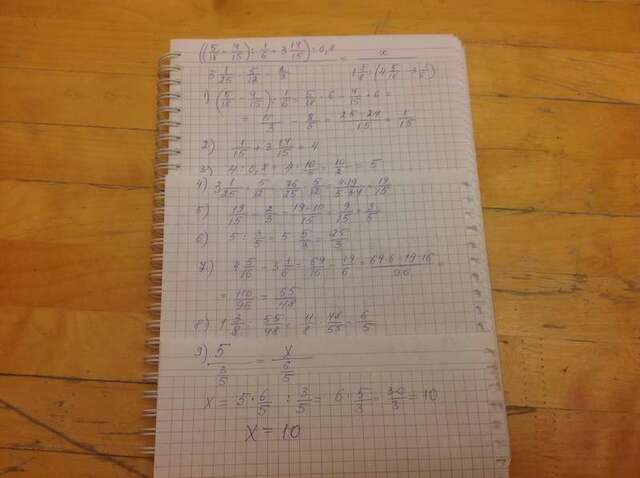 ((5/18 - 4/15) : 1/6 + 3 14/15) : 0,8 = x
3 1/25 · 5/12 - 2/3 1 3/8 : (4 5/16 - 3 1/6)
1) (5/18 - 4/15) : 1/6 = 5/18 · 6 - 4/15 · 6 =
= 5/3 - 8/5 = 25-24/15 = 1/15
2) 1/15 + 3 14/15 = 4
3) 4 : 0,8 = 4 · 10/8 = 10/2 = 5
4) 3 1/25 · 5/12 = 76/25 · 5/12 = 4·19/5·3·4 = 19/15
5) 19/15 - 2/3 = 19-10/15 = 9/15 = 3/5
6) 5 : 3/5 = 5 · 5/3 = 25/3
7) 4 5/16 - 3 1/6 = 69/16 - 19/6 = 69·6-19·16/96 =
= 110/96 = 55/48
8) 1 3/8 : 55/48 = 11/8 · 48/55 = 6/5
9) 5 / 3/5 = x / 6/5
x = 5 · 6/5 : 3/5 = 6 · 5/3 = 30/3 = 10
x = 10